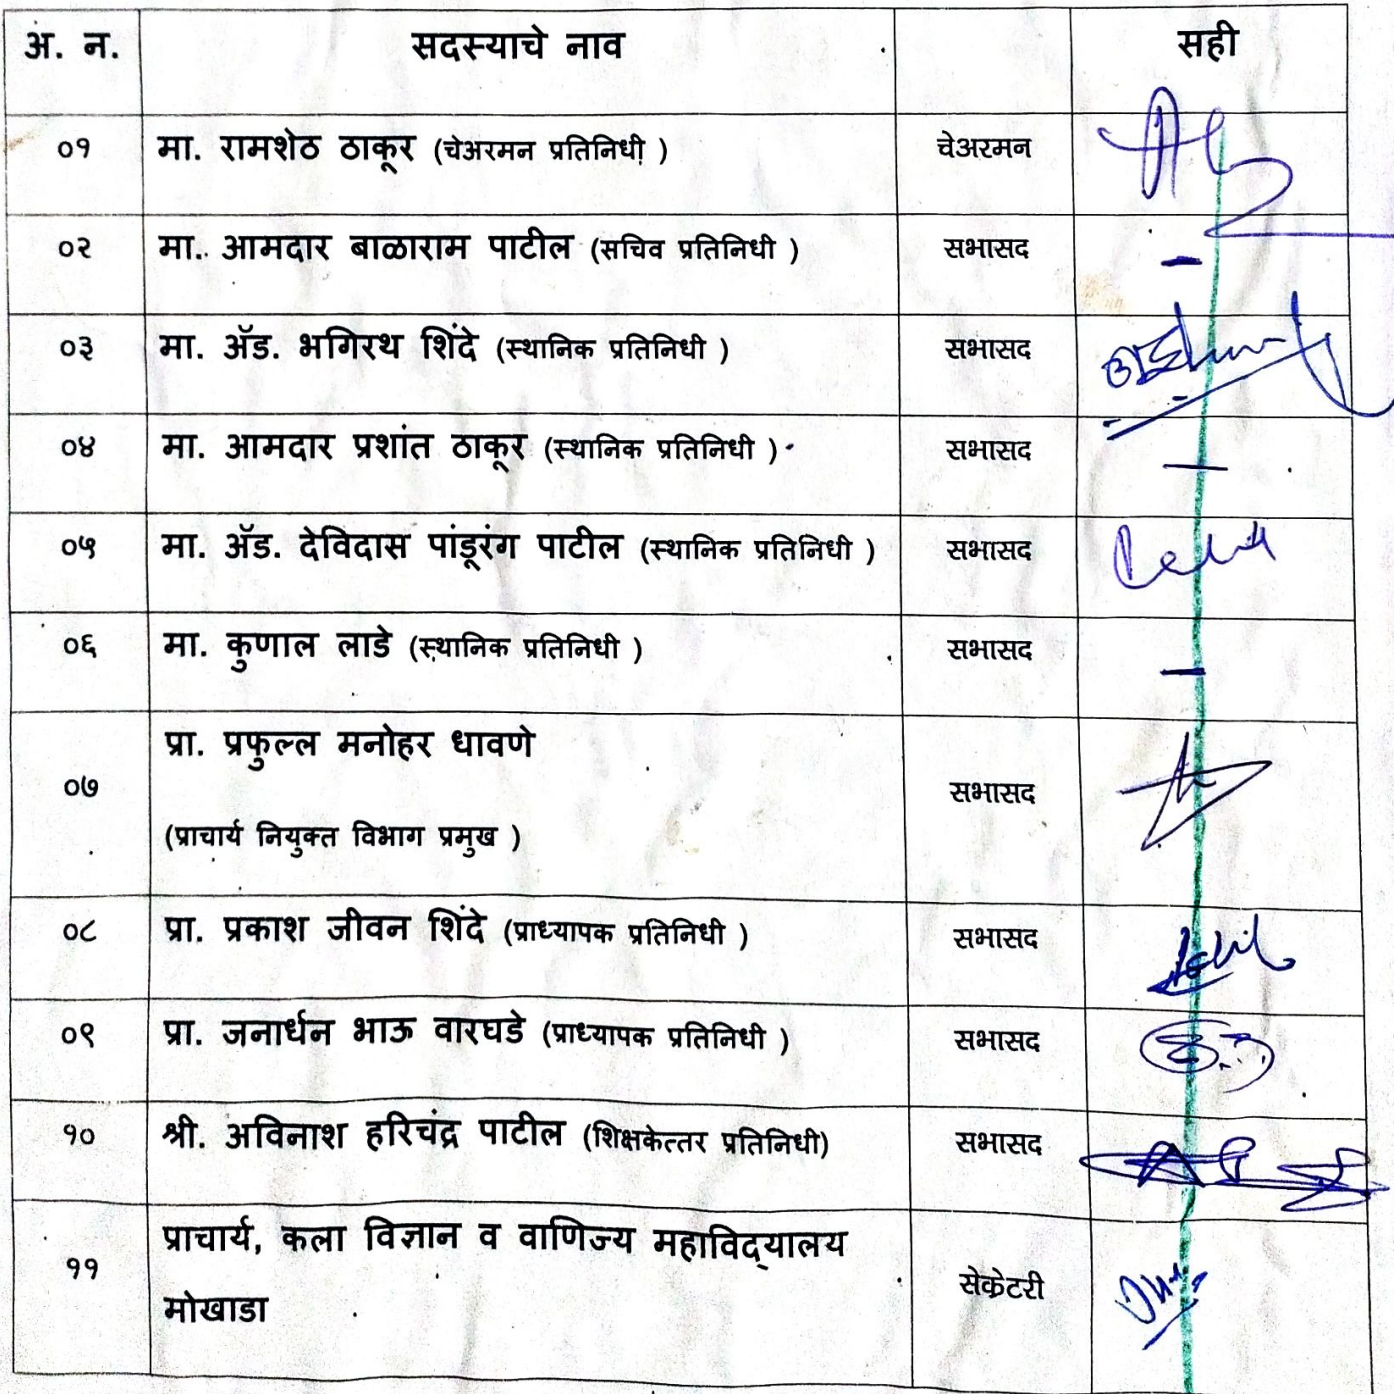 अ. न. सदस्याचे नाव सही
०१ मा. रामशेठ ठाकूर (चेअरमन प्रतिनिधी ) चेअरमन
०२ मा. आमदार बाळाराम पाटील (सचिव प्रतिनिधी ) सभासद –
०३ मा. ॲड. भगिरथ शिंदे (स्थानिक प्रतिनिधी ) सभासद
०४ मा. आमदार प्रशांत ठाकूर (स्थानिक प्रतिनिधी ) सभासद –
०५ मा. ॲड. देविदास पांडूरंग पाटील (स्थानिक प्रतिनिधी ) सभासद
०६ मा. कुणाल लाडे (स्थानिक प्रतिनिधी ) सभासद –
प्रा. प्रफुल्ल मनोहर धावणे
०७ सभासद
(प्राचार्य नियुक्त विभाग प्रमुख )
०८ प्रा. प्रकाश जीवन शिंदे (प्राध्यापक प्रतिनिधी ) सभासद
०९ प्रा. जनार्धन भाऊ वारघडे (प्राध्यापक प्रतिनिधी ) सभासद
१० श्री. अविनाश हरिचंद्र पाटील (शिक्षकेत्तर प्रतिनिधी) सभासद
प्राचार्य, कला विज्ञान व वाणिज्य महाविद्‌यालय
११ सेक्रेटरी
मोखाडा